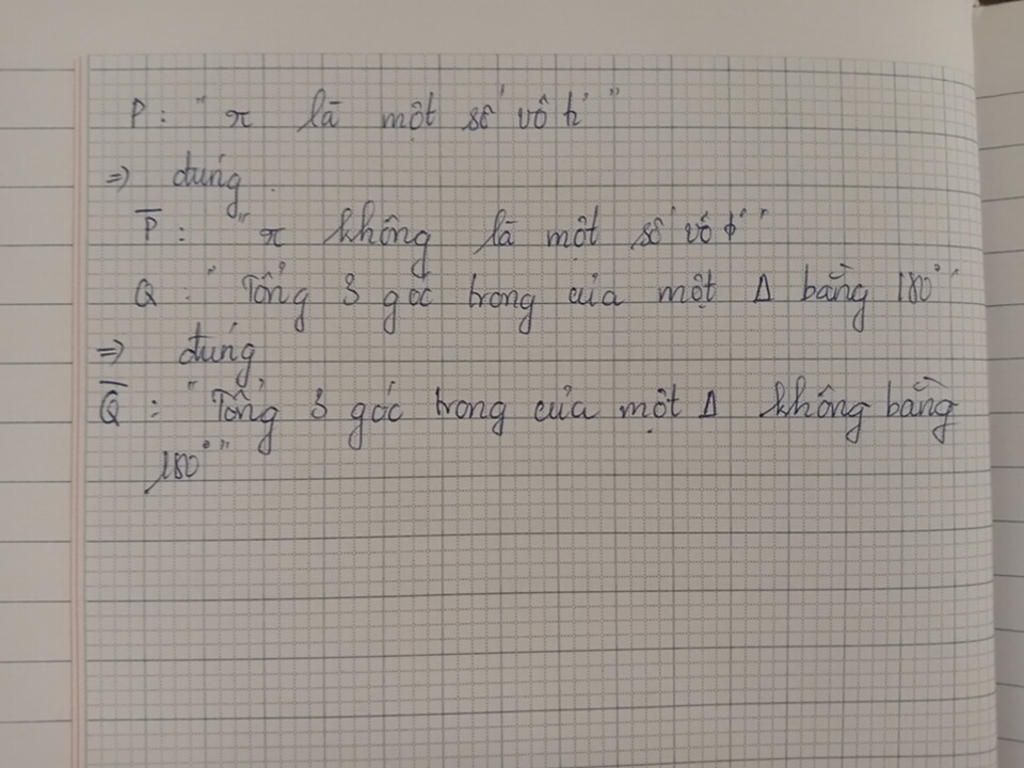 P: " π là một số vô tỉ "
=> đúng.
P̅: " π không là một số vô tỉ "
Q: " Tổng 3 góc trong của một Δ bằng 180° "
=> đúng
Q̅: " Tổng 3 góc trong của một Δ không bằng
180° "